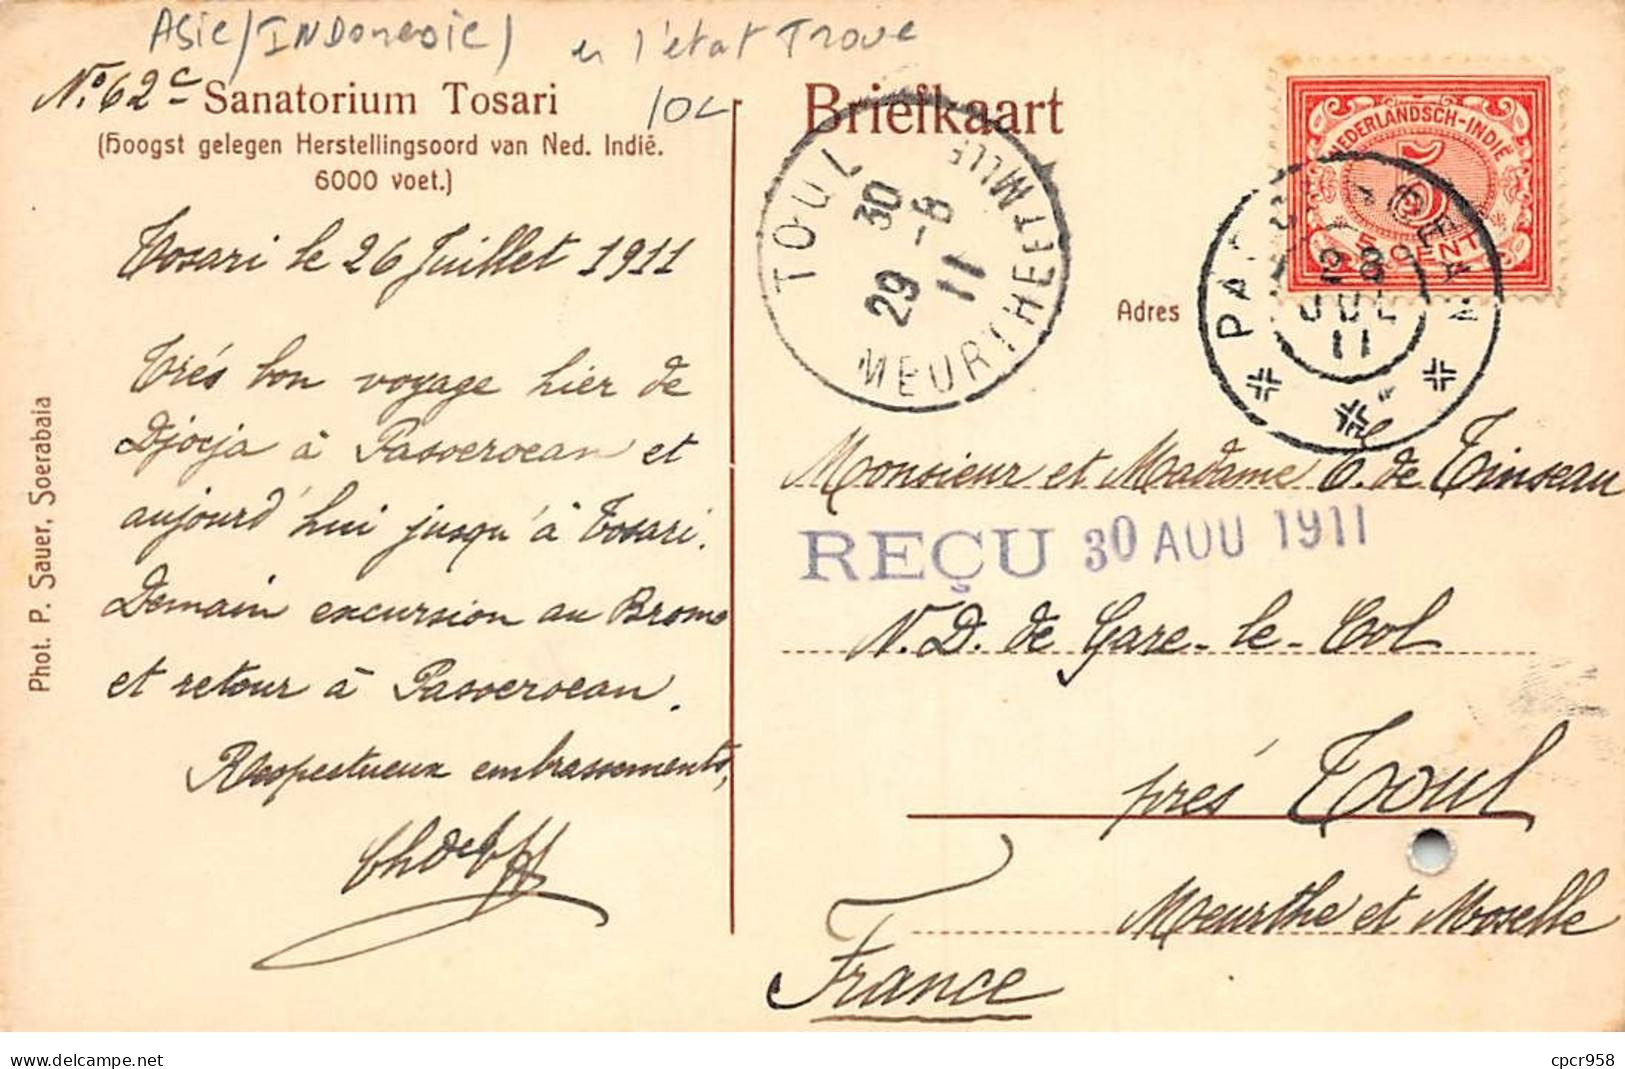 Asie/INDonesie/ en l'état Trove
N.º 62 c
10L
Sanatorium Tosari
(Hoogst gelegen Herstellingsoord van Ned. Indië.
6000 voet.)
Tosari le 26 Juillet 1911
Trés bon voyage hier de
Djocja à Pasoeroean et
aujourd'hui jusqu'à Tosari.
Demain excursion au Bromo
et retour à Pasoeroean.
Respectueux embrassements,
Phot. P. Sauer, Soerabaia
Briefkaart
TOUL
30
29 -8
11
MEURTHE ET MLLE
NEDERLANDSCH-INDIË
5
5 CENT
28
JUL
11
Adres
Monsieur et Madame C. de Tinseau
REÇU 30 AOU 1911
N. D. de Gare-le-Col
prés Toul
Meurthe et Moselle
France
delcampe.net
cpcr958